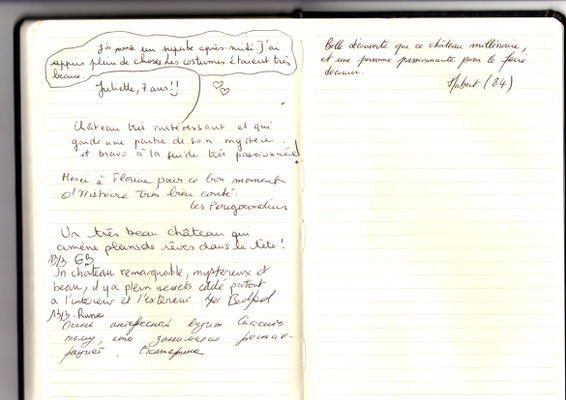 J'ai passé un superbe après-midi J'ai
appris plein de choses. Les costumes étaient très
beaux.
Juliette, 7 ans!!
Château très intéressant et qui
garde une partie de son mystère.
et bravo à la guide très passionnée!
Merci à Florine pour ce bon moment
d'Histoire très bien conté.
Les Perigourdins
Un très beau château qui
amène pleins de rêves dans le tête!
13/3 GB
Un château remarquable, mysterieux et
beau, il y a plein secrets caché partout
a l'interieur et l'extérieur
13/3 - Russe
Очень интересный Спасибо
тому, кто занимался рестав-
рацией. Екатерина
Belle découverte que ce château millénaire,
et une personne passionnante pour le faire
découvrir.
Hubert (84)